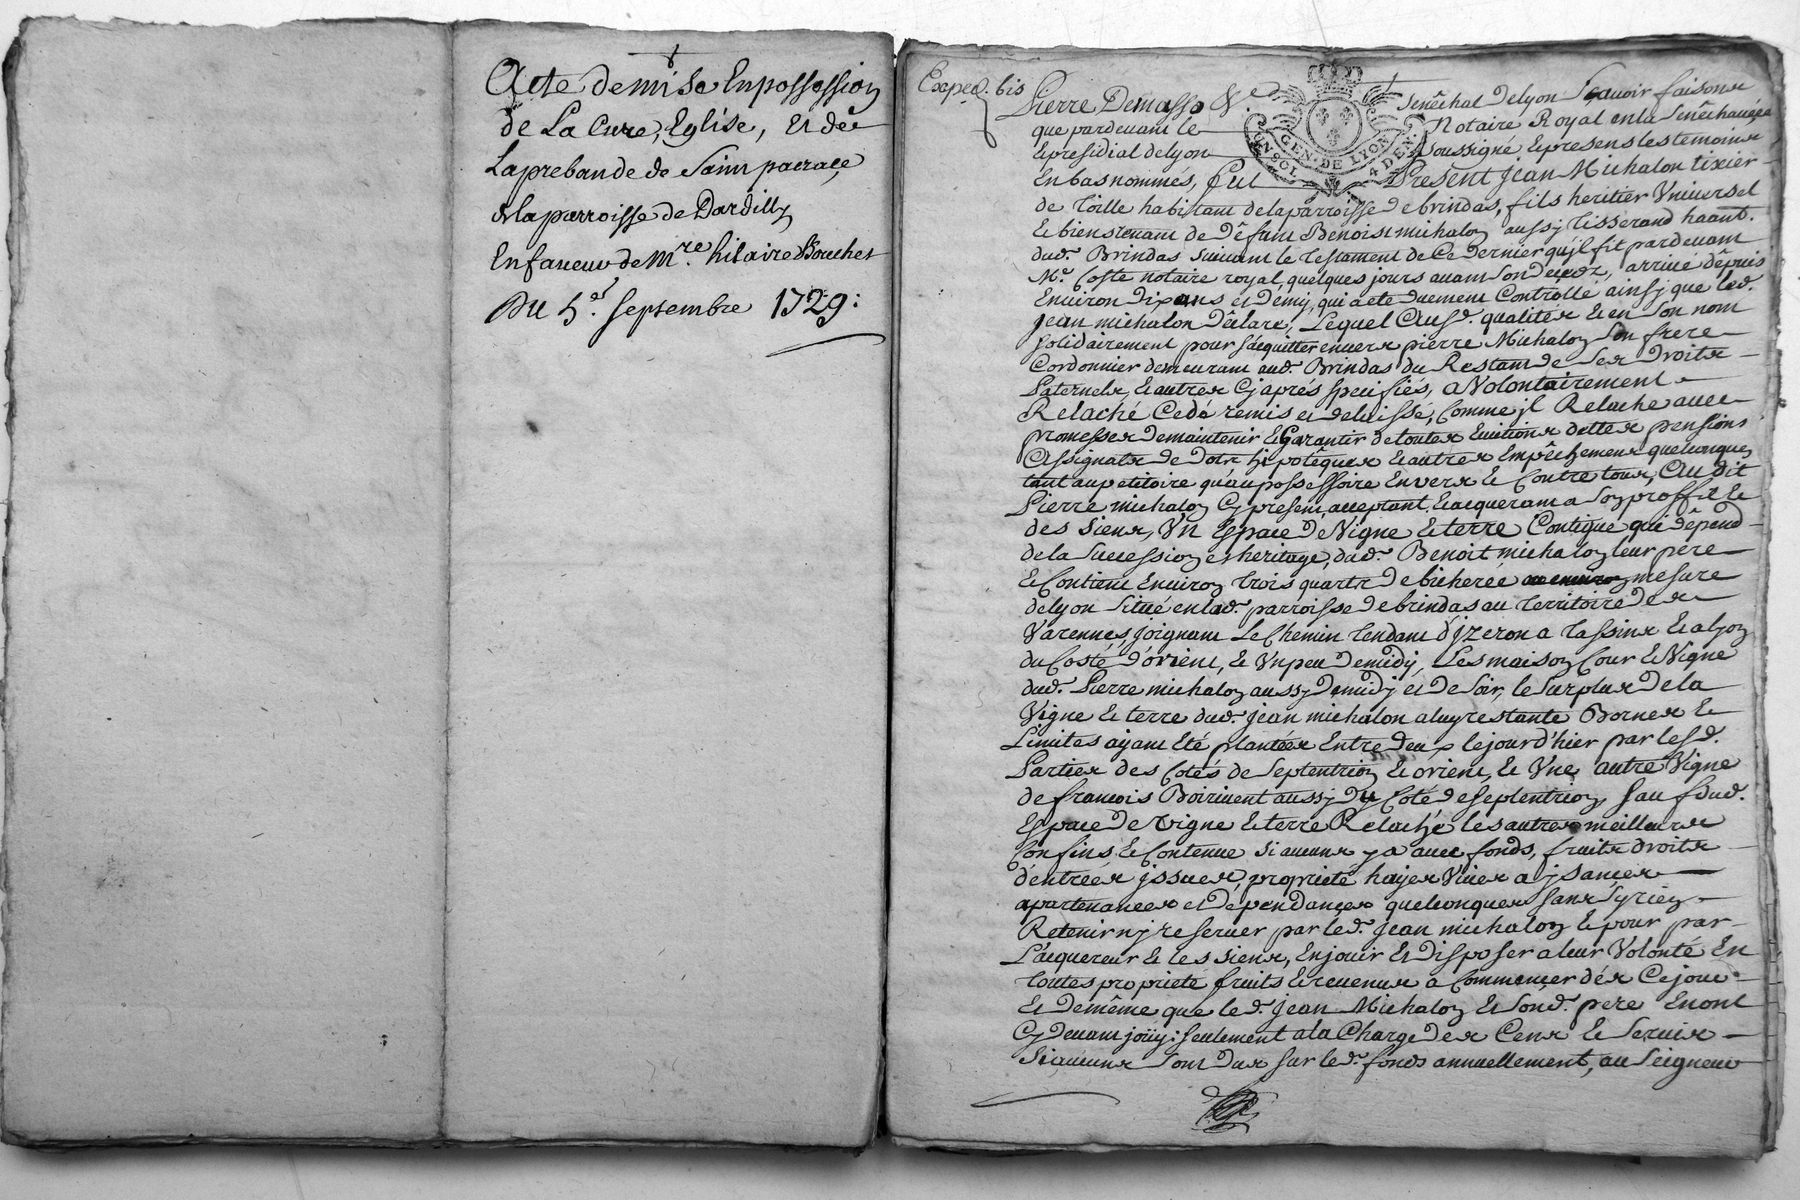 Acte de mise En possession
de La Cure, Eglise, Et de
La prebande de Saint pacrace
de la parroisse de Dardilly
En faueur de Mre. hilaire Bouchet
Du 5e. Septembre 1729:
Exped. bis
Pierre Demasso &.
Senêchal de lyon Sçauoir faisons
que pardeuant le
Notaire Royal en la Senêchaucée
& presidial de lyon
Soussigné & presens les temoins
En bas nommés, fut
GEN. DE LYON
Present Jean Michalon tixier
de toille habitant de la parroisse de brindas, fils heritier Vniuersel
& bien tenant de Dêfunt Benoist michalon aussy tisserand haant.
dud. Brindas suiuant le testament de Ce dernier qu'jl fit pardeuant
Me. Coste notaire royal, quelques jours auant son decedz, arriué dêpuis
Enuiron dix ans et demy, qui a eté duement Contrôllé ainsy que led.
Jean michalon dêclare, Lequel Ausd. qualités & en son nom
solidairement pour s'acquitter enuers pierre Michalon son frere
Cordonnier demeurant aud. Brindas du Restant de Ses droits
Paternels, & autres Cy aprés specifiés, a Volontairement
Relaché Cedé remis et delaissé, Comme jl Relache auec
promesses de maintenir & Garantir de toutes Euictions dettes pensions
Assignats de dots hipotêques & autres Empêchemens quelconques
tant au petitoire qu'au possessoire Envers & Contre tous, Au dit
Pierre michalon Cy present, acceptant, & acquerant a son proffit &
des siens, Vn Espace de Vigne & terre Contigue qui dêpend
de la Succession et heritage, dud. Benoit michalon leur pere
& Contient Enuiron trois quarts de bicherée mesure
de lyon situé en lad. parroisse de brindas au territoire des
Varennes, joignant Le Chemin tendant d'jzeron a tassins & a lyon
du Costé d'orient, & Vn peu de midy, Les maison Cour & Vigne
dud. Pierre michalon aussy de midy et de soir, le surplus de la
Vigne & terre dud. jean michalon a luy restante Bornes &
Limites ayant Eté plantées Entre deux le jourd'hier par lesd.
Parties des Cotés de Septentrion & orient, & Vne autre Vigne
de francois Boiriuent aussy du Coté de septentrion, sauf dud.
Espace de Vigne & terre Relaché les autres meilleurs
Confins & Contenue si aucuns y a auec fonds, fruits droits
d'entrées jssues, propriété hayes Viues ajsances
apartenances et dependances quelconques sans y rien
Retenir ny reseruer par led. Jean michalon & pour par
L'acquereur & les siens, En jouir Et disposer a leur Volonté En
toutes propriété fruits & reuenus a Commencer dés Ce jour
Et de même que led. Jean Michalon Et sond. pere En ont
Cy deuant joüy: seulement a la Charge des Cens & Seruis
Si aucuns sont dus sur led. fonds annuellement, au Seigneur